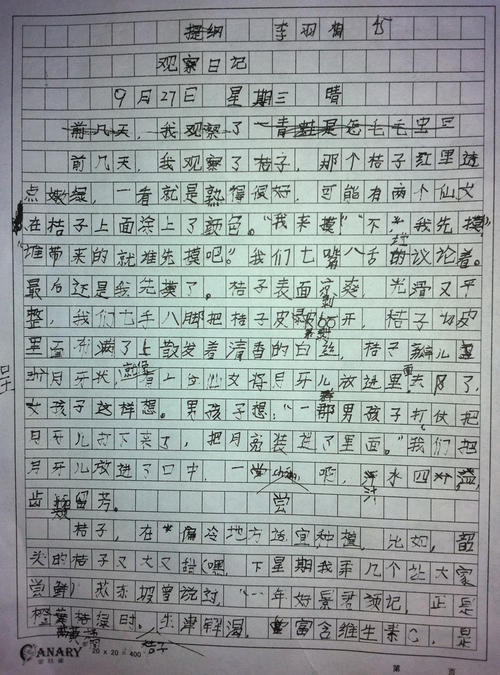 提纲 李羽
观察日记
9月27日 星期三 晴
前几天，我观察了一青蛙是怎
前几天，我观察了桔子，那个桔子红里透
点嫩绿，一看就是熟得很好，可能有两个仙女
在桔子上面涂上了颜色。“我来摸”“不，我先摸”
“谁带来的就谁先摸吧。”我们七嘴八舌的议论着。
最后还是我先摸了。桔子表面凉爽，光滑又平
整，我们七手八脚把桔子皮剥开，桔子皮
里面布满了上散发着清香的白丝，桔子瓣儿呈
月牙状，就像上仙女将月牙儿放进里面去了，
女孩子这样想。男孩子想：“一群男孩子打仗把
月牙儿打下来了，把月亮装进了里面。”我们把
月牙儿放进了口中，一尝啊，汁水四溢，
齿颊留芳。
桔子，在偏冷地方适宜种植，比如，韶
关的桔子又大又甜(嘿，下星期我弄几个让大家
尝鲜)苏东坡曾说过：“一年好景君须记，正是
橙黄桔绿时。”生津解渴，富含维生素C，是
桔子
CANARY
20×20=400
第 页